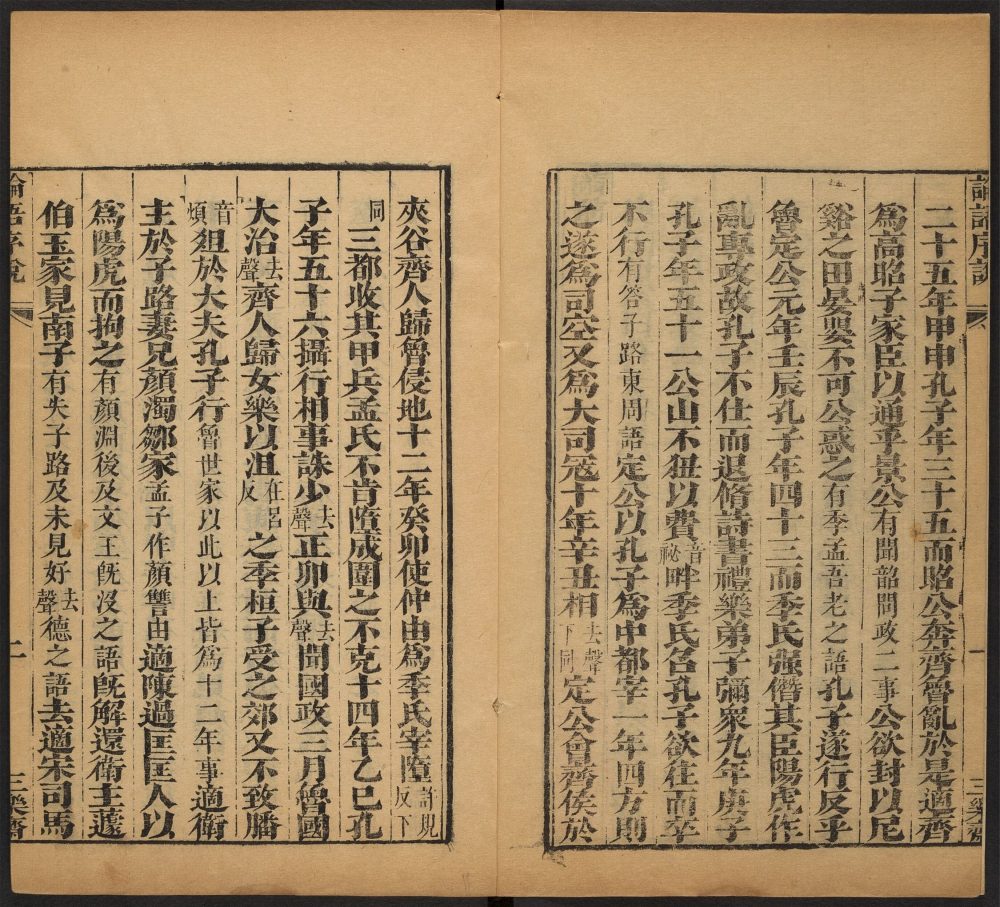 論語序說
一
三樂齋
二十五年甲申孔子年三十五而昭公奔齊魯亂於是適齊
爲高昭子家臣以通乎景公有聞韶問政二事公欲封以尼
谿之田晏嬰不可公惑之有季孟吾老之語孔子遂行反乎
魯定公元年壬辰孔子年四十三而季氏强僭其臣陽虎作
亂專政故孔子不仕而退脩詩書禮樂弟子彌衆九年庚子
孔子年五十一公山不狃以費音祕畔季氏召孔子欲往而卒
不行有答子路東周語定公以孔子爲中都宰一年四方則
之遂爲司空又爲大司寇十年辛丑相去聲下同定公會齊侯於
夾谷齊人歸魯侵地十二年癸卯使仲由爲季氏宰墮許規反下
同三都收其甲兵孟氏不肯墮成圍之不克十四年乙巳孔
子年五十六攝行相事誅少去聲正卯與去聲聞國政三月魯國
大治去聲齊人歸女樂以沮在呂反之季桓子受之郊又不致膰
音煩俎於大夫孔子行魯世家以此以上皆爲十二年事適衛
主於子路妻兄顏濁鄒家孟子作顏讐由適陳過匡匡人以
爲陽虎而拘之有顏淵後及文王旣沒之語旣解還衛主蘧
伯玉家見南子有矢子路及未見好去聲德之語去適宋司馬
論語序說
二
三樂齋